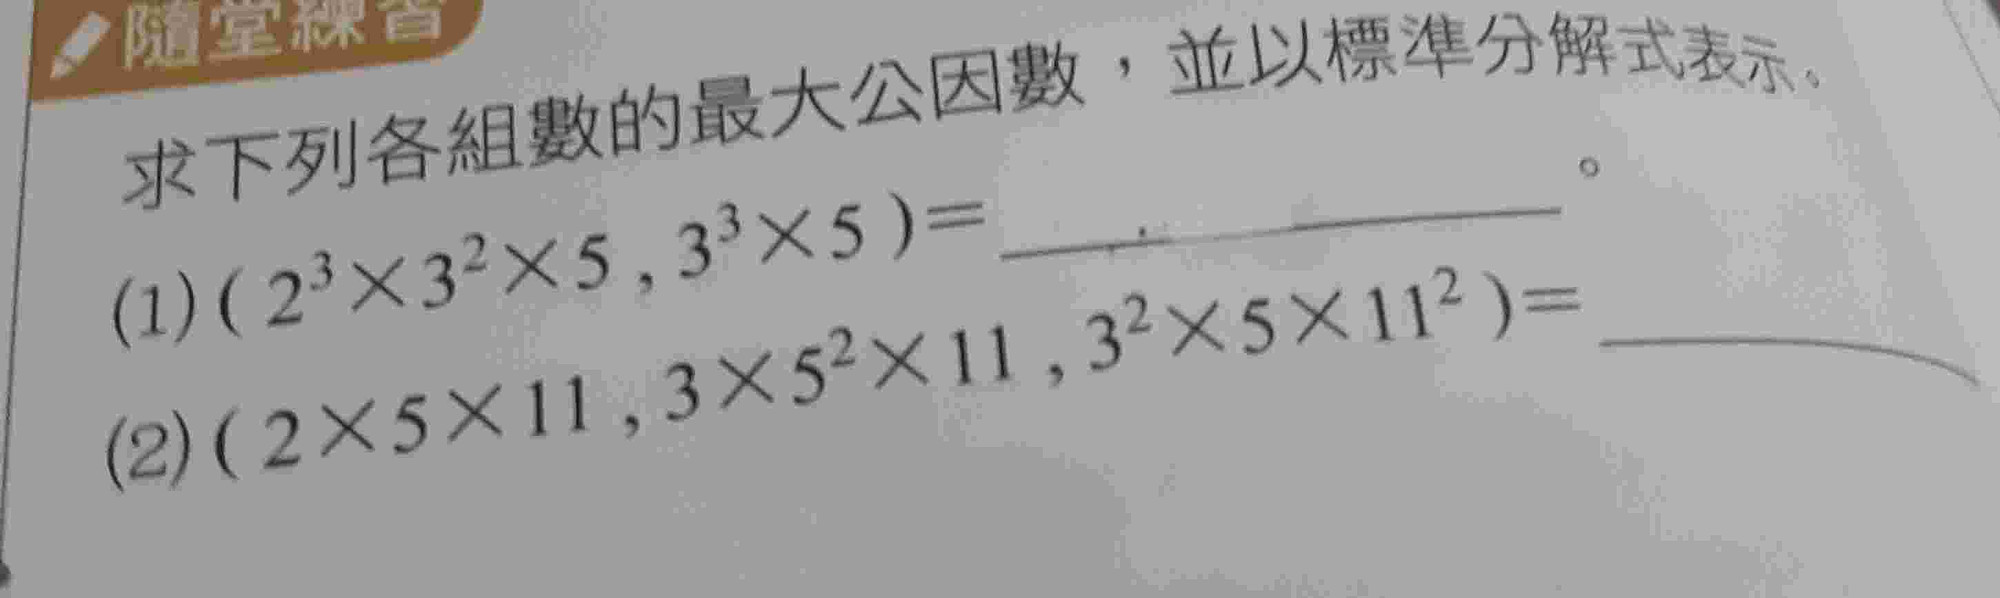 隨堂練習
求下列各組數的最大公因數，並以標準分解式表示。
(1) ( 2³×3²×5 , 3³×5 )=＿＿＿＿＿＿。
(2) ( 2×5×11 , 3×5²×11 , 3²×5×11² )=＿＿＿＿